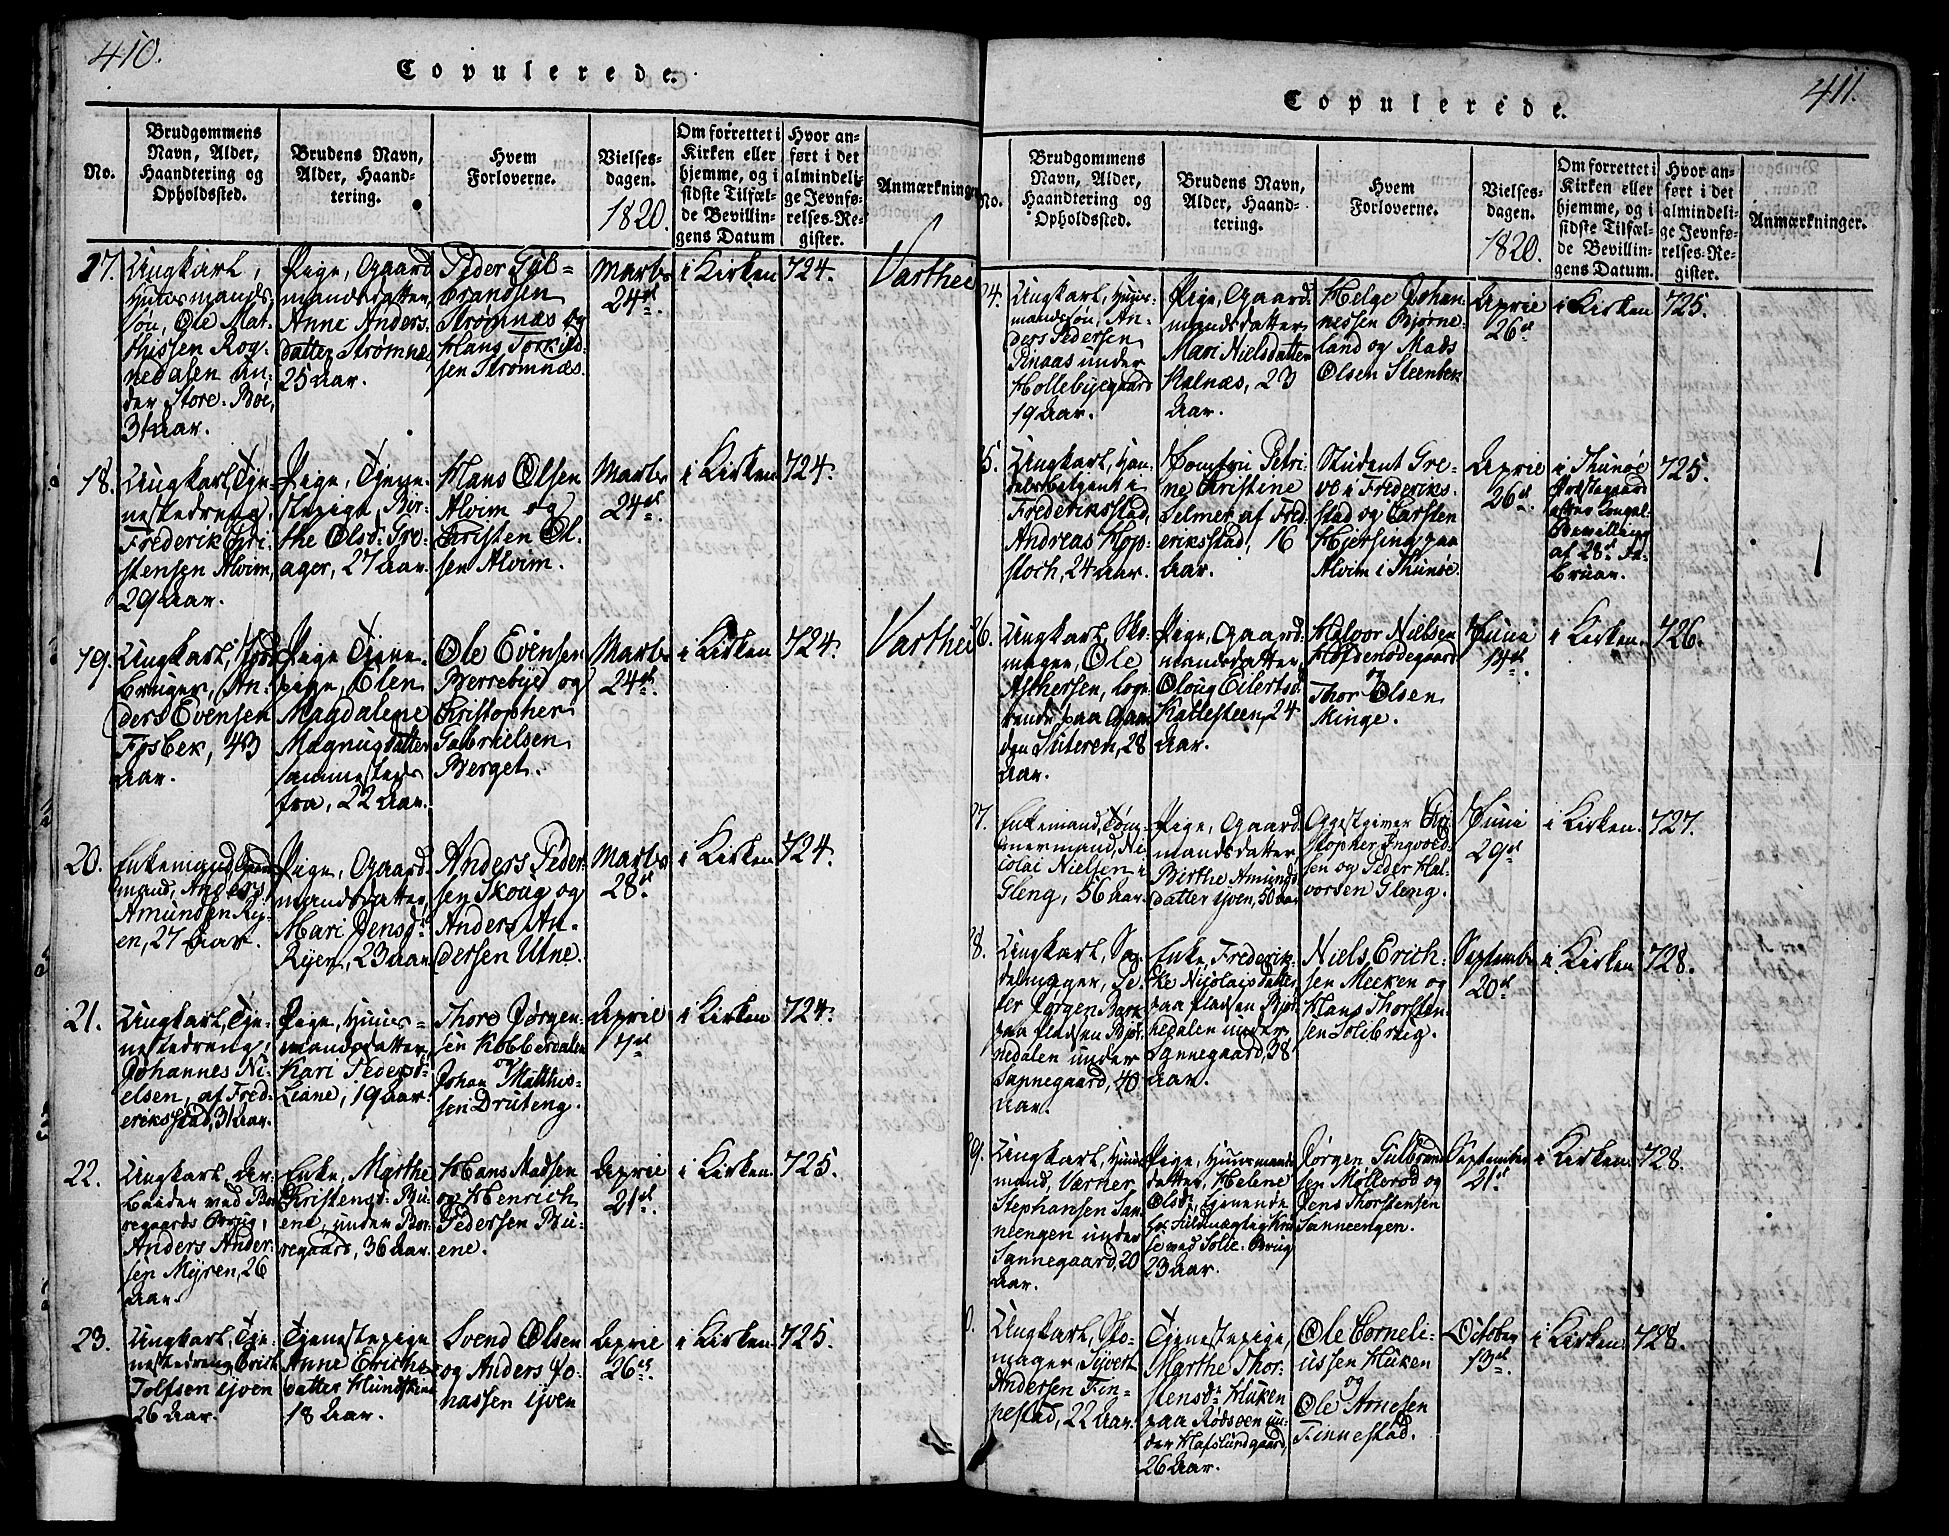 410.
Copulerede.
No.
Brudgommens
Navn, Alder,
Haandtering og
Opholdssted.
Brudens Navn,
Alder, Haand-
tering.
Hvem
Forloverne.
Vielses-
dagen.
1820.
Om forrettet i
Kirken eller
hjemme, og i
sidste Tilfæl-
de Bevillin-
gens Datum
Hvor an-
ført i det
almindeli-
ge Jevnfø-
relses-Re-
gister.
Anmærkninger
17.
Ungkarl,
Huusmands-
søn, Ole Mat-
thissen Rog-
nedalen un-
der Store-Bøe,
31 Aar.
Pige, Gaard
mandsdatter,
Anne Anders-
datter Strømnæs
25 Aar.
Peder Gul-
brandsen
Strømnæs og
Hans Torkild-
sen Strømnæs.
Marts
24de.
i Kirken
724.
18.
Ungkarl, Tje-
nestedreng,
Frederik Chri-
stensen Alvim,
29 Aar.
Pige, Tjene-
stepige, Bir-
the Olsd: Gre-
ager, 27 Aar.
Hans Olsen
Alvim og
Christen Ol-
sen Alvim.
Marts
24de.
i Kirken
724.
19.
Ungkarl, Jord
bruger, An-
ders Evensen
Fosbek, 43
Aar.
Pige Tjene-
pige, Elen
Magdalene
Magnusdatter
sammesteds
fra, 22 Aar.
Ole Evensen
Berrebye og
Christopher
Gabrielsen
Berget.
Marts
24de.
i Kirken
724.
20.
Enkemand, Gaard
mand, Anders
Amundsen Ry-
en, 27 Aar.
Pige, Gaard
mandsdatter,
Mari Jensd:
Ryen, 23 Aar
Anders Peder-
sen Skoug og
Anders An-
dersen Utne.
Marts
28de.
i Kirken
724.
21.
Ungkarl, Tje-
nestedreng,
Johannes Ni-
elsen, af Fred-
eriksstad, 31 Aar.
Pige, Huus-
mandsdatter,
Kari Pedersd:
Liane, 19 Aar.
Thore Jørgen-
sen Kobberdalen
og
Johan Matthis-
sen Druteng.
April
i Kirken
724.
22.
Ungkarl, Ar-
beider ved Bor-
regaards Brug,
Anders Ander-
sen Myren, 26
Aar.
Enke, Marthe
Christensd: Bu-
ene, under Bor-
regaard, 36 Aar.
Hans Madsen
og Henrich
Pedersen Bu-
ene.
April
21de.
i Kirken.
725.
23.
Ungkarl, Tje-
nestedreng Erich
Tolfsen Ijven
26 Aar.
Tjenestepige
Anne Erichs-
datter Hundskind
18 Aar.
Svend Olsen
og Anders Jo-
hassen Ijven
April
26de.
i Kirken.
725.
411.
Copulerede.
No.
Brudgommens
Navn, Alder,
Haandtering og
Opholdssted.
Brudens Navn,
Alder, Haand-
tering.
Hvem
Forloverne.
Vielses-
dagen.
1820.
Om forrettet i
Kirken eller
hjemme, og i
sidste Tilfæl-
de Bevillin-
gens Datum.
Hvor an-
ført i det
almindeli-
ge Jevnfø-
relses-Re-
gister.
Anmærkninger.
24.
Ungkarl, Huus-
mandssøn, An-
ders Pedersen
under
Hollebyegaard
19 Aar.
Pige, Gaard
mandsdatter
Mari Nielsdatter
Kalnæs, 23
Aar.
Helge Johan-
nessen Bjørne-
land og Mads
Olsen Steenbek
April
26de
i Kirken
725.
5.
Ungkarl, Han-
delsbetjent i
Frederiksstad,
Andreas Hop-
stoch, 24 Aar.
Jomfru Petri-
ne Christine
Selmer af Fred
eriksstad, 16
Aar.
Student Gre-
ve i Frederiks-
stad og Carsten
Hjersing paa
Alvim i Thunøe.
April
26de
i Thunøe
Præstegaard
efter Kongel.
Bevilling
af 28de Fe-
bruar.
725.
26.
Ungkarl, Sko-
mager, Ole
Asthersen, loge-
rende paa Gaar
den Stiteren, 28
Aar.
Pige, Gaard-
mandsdatter,
Oloug Eilertsd:
Kattesteen, 24
Aar.
Halvor Nielsen
og
Thor Olsen
Minge.
Juni
14de.
i Kirken.
726.
27.
Enkemand, Tøm-
mermand, Ni-
colai Nielsen i
Gleng, 56 Aar.
Pige, Gaard
mandsdatter
Birthe Amunds
datter Ijven, 50 Aar
Gjestgiver Chri
stopher Ingvold-
sen og Peder Hal-
vorsen Gleng.
Juni
29de
i Kirken.
727.
28.
Ungkarl, Sa-
delmager, Pe-
ter Jørgen Bark
paa Pladsen Bjør-
nedalen under
Sannegaard, 40
Aar.
Enke, Frederik-
ke Nicolaisdatter
paa Pladsen Bjør-
nedalen under
Sannegaard, 38
Aar.
Niels Erich-
sen Meeken og
Hans Thorsten-
sen Solibraig.
Septembr
20de
i Kirken
728.
29.
Ungkarl, Huus-
mand, Værner
Stephansen San-
neengen under
Sannegaard, 20
Aar.
Pige, Huusmands
datter, Helene
Olsd: tjenende
hos Fuldmægtig Kru
se ved Solle-Brug
23 Aar.
Jørgen Gulbrand
sen Møllerød og
Jens Thorstensen
Sanneengen.
September
21de
i Kirken.
728.
Ungkarl, Sko-
mager, Syvert
Andersen Fin-
nestad, 22 Aar.
Tjenestepige,
Marthe Thor-
stensd: Huken
paa Rødsøen un-
der Hafslundgaard,
26 Aar.
Ole Corneli-
ussen Huken
og
Ole Arnesen
Finnestad.
October
13de.
i Kirken.
728.